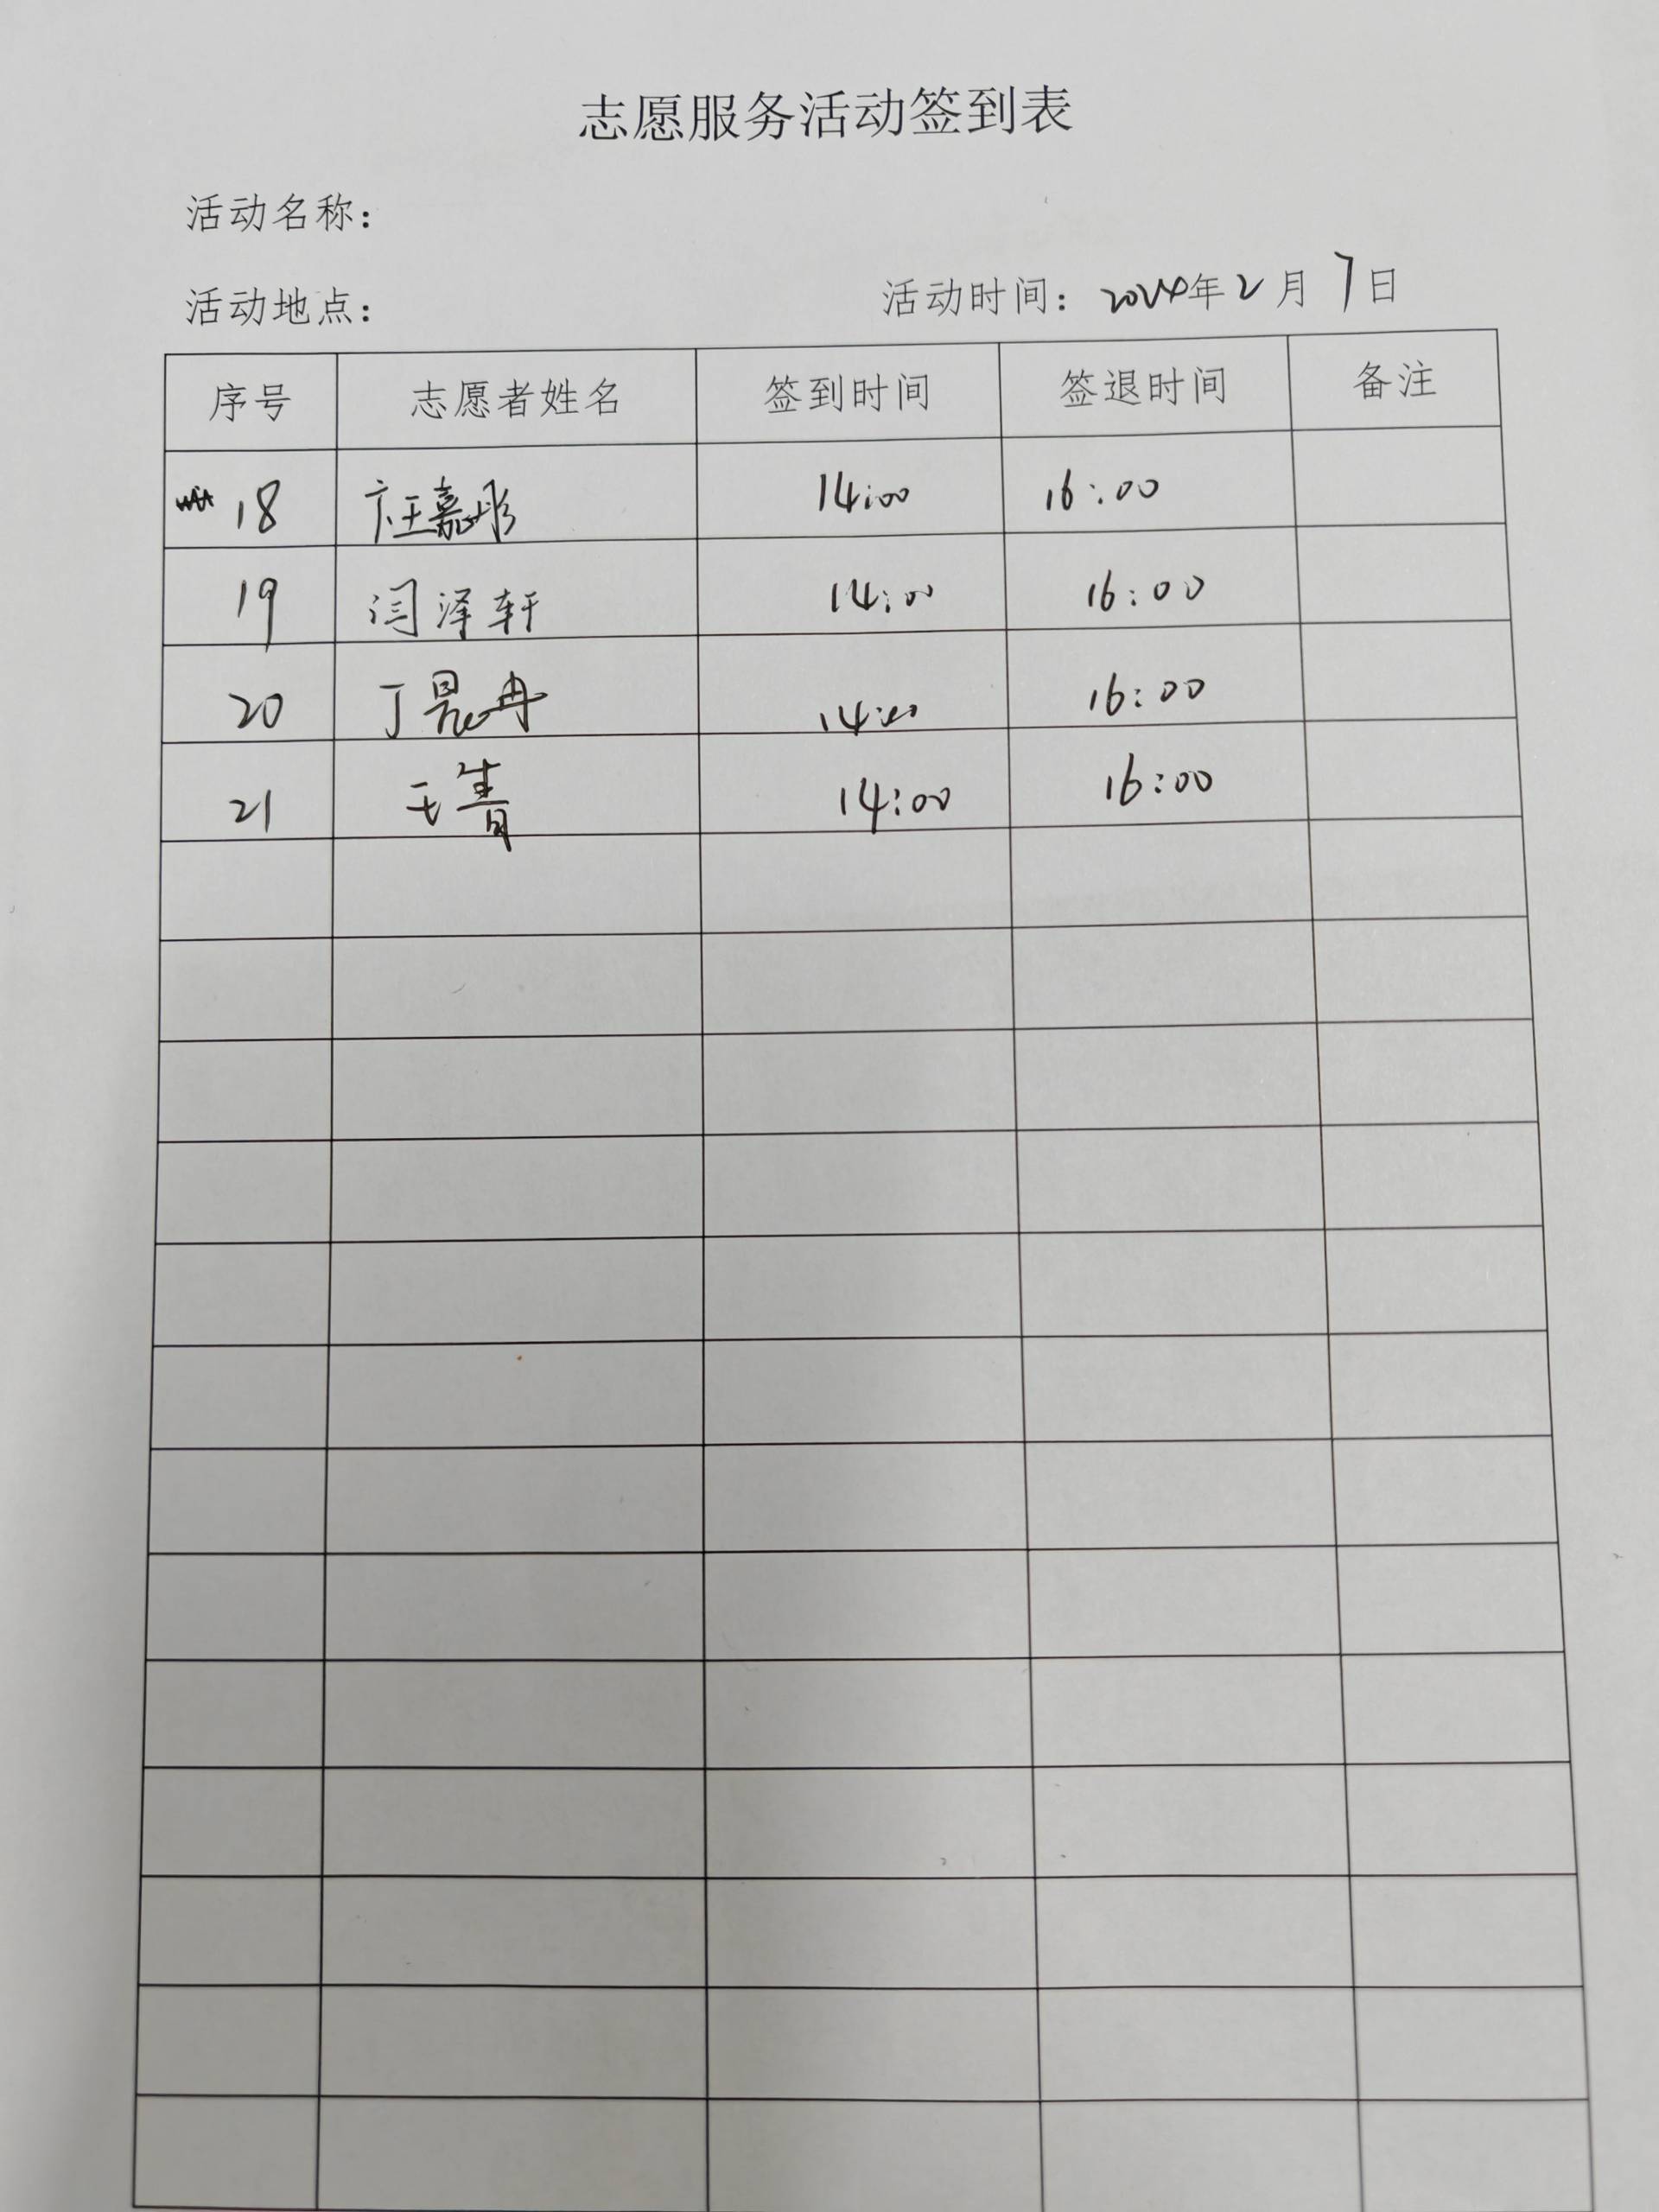 志愿服务活动签到表
活动名称：
活动地点： 活动时间：2024年2月7日
序号 志愿者姓名 签到时间 签退时间 备注
18 嘉彤 14:00 16:00
19 闫泽轩 14:00 16:00
20 丁晨冉 14:00 16:00
21 王青 14:00 16:00